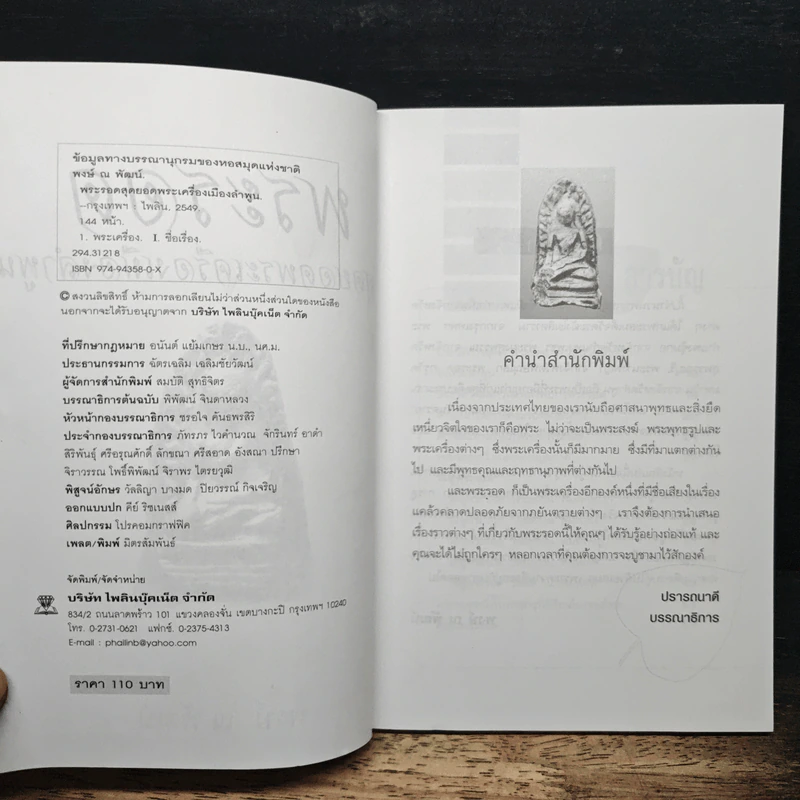 ข้อมูลทางบรรณานุกรมของหอสมุดแห่งชาติ
พงษ์ ณ พัฒน์.
พระรอดสุดยอดพระเครื่องเมืองลำพูน.
--กรุงเทพฯ : ไพลิน. 2549.
144 หน้า.
1. พระเครื่อง. I. ชื่อเรื่อง.
294.31218
ISBN 974-94358-0-X
© สงวนลิขสิทธิ์ ห้ามการลอกเลียนไม่ว่าส่วนหนึ่งส่วนใดของหนังสือ
นอกจากจะได้รับอนุญาตจาก บริษัท ไพลินบุ๊คเน็ต จำกัด
ที่ปรึกษากฎหมาย อนันต์ แย้มเกษร น.บ., นศ.ม.
ประธานกรรมการ ฉัตรเฉลิม เฉลิมชัยวัฒน์
ผู้จัดการสำนักพิมพ์ สมบัติ สุทธิจิตร
บรรณาธิการต้นฉบับ พิพัฒน์ จินดาหลวง
หัวหน้ากองบรรณาธิการ ชรอใจ คันธพรสิริ
ประจำกองบรรณาธิการ ภัทรภร ไวคำนวณ จักรินทร์ อาดำ
สิริพันธุ์ ศรีอรุณศักดิ์ ลักขณา ศรีสอาด อังสณา ปรึกษา
จิราวรรณ โพธิ์พิพัฒน์ จิราพร ไตรยวุฒิ
พิสูจน์อักษร วัลลิญา บางมด ปิยวรรณ์ กิจเจริญ
ออกแบบปก คีย์ ริชเนสส์
ศิลปกรรม โปรคอมกราฟฟิค
เพลต/พิมพ์ มิตรสัมพันธ์
จัดพิมพ์/จัดจำหน่าย
บริษัท ไพลินบุ๊คเน็ต จำกัด
834/2 ถนนลาดพร้าว 101 แขวงคลองจั่น เขตบางกะปิ กรุงเทพฯ 10240
โทร. 0-2731-0621 แฟกซ์. 0-2375-4313
E-mail : phailinb@yahoo.com
ราคา 110 บาท
คำนำสำนักพิมพ์
เนื่องจากประเทศไทยของเรานับถือศาสนาพุทธและสิ่งยึด
เหนี่ยวจิตใจของเราก็คือพระ ไม่ว่าจะเป็นพระสงฆ์ พระพุทธรูปและ
พระเครื่องต่างๆ ซึ่งพระเครื่องนั้นก็มีมากมาย ซึ่งมีที่มาแตกต่างกัน
ไป และมีพุทธคุณและฤทธานุภาพที่ต่างกันไป
และพระรอด ก็เป็นพระเครื่องอีกองค์หนึ่งที่มีชื่อเสียงในเรื่อง
แคล้วคลาดปลอดภัยจากภยันตรายต่างๆ เราจึงต้องการนำเสนอ
เรื่องราวต่างๆ ที่เกี่ยวกับพระรอดนี้ให้คุณๆ ได้รับรู้อย่างถ่องแท้ และ
คุณจะได้ไม่ถูกใครๆ หลอกเวลาที่คุณต้องการจะบูชามาไว้สักองค์
ปรารถนาดี
บรรณาธิการ